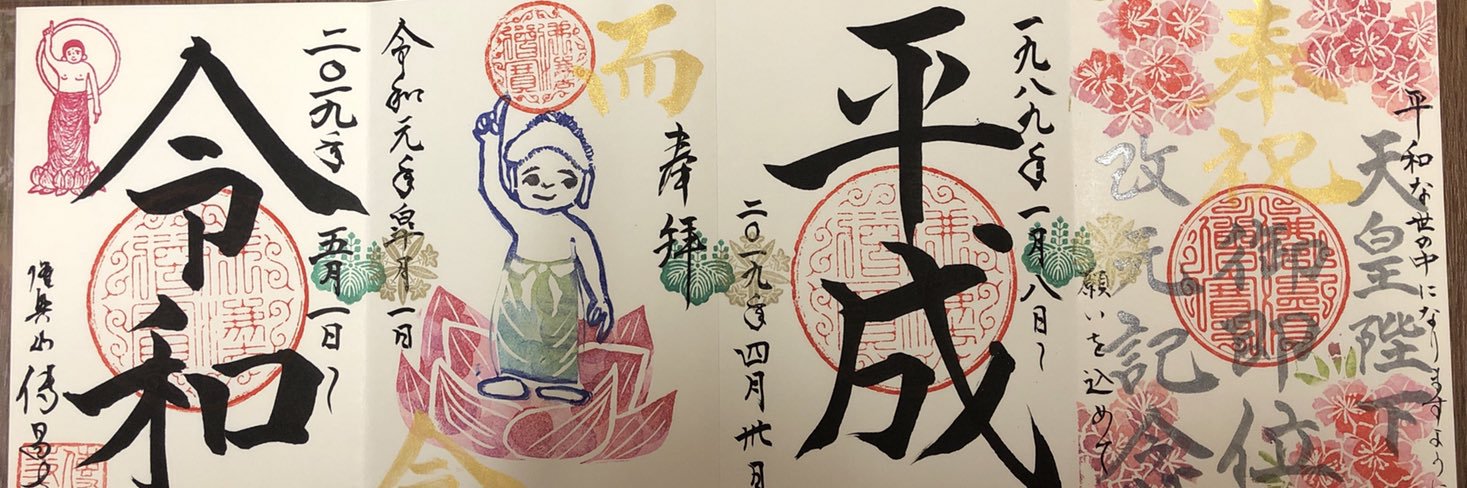 平和な世の中になりますように
天皇陛下
奉祝
御即位
改元記念
願いを込めて
一九八九年一月八日〜
平成
二〇一九年四月卅日
奉拝
而今
令和元年皐月一日
二〇一九年五月一日〜
令和
傳昌